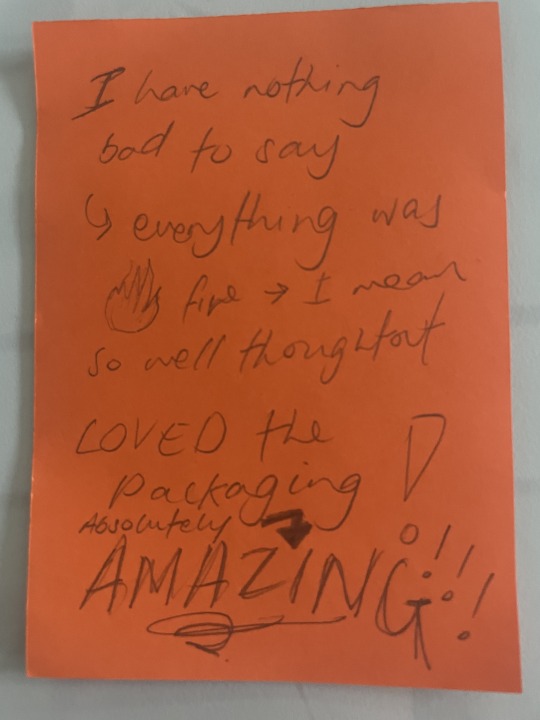 I have nothing
bad to say
↳ everything was
🔥 fire → I mean
so well thoughtout
LOVED the
packaging !
Absolutely
AMAZING!!!